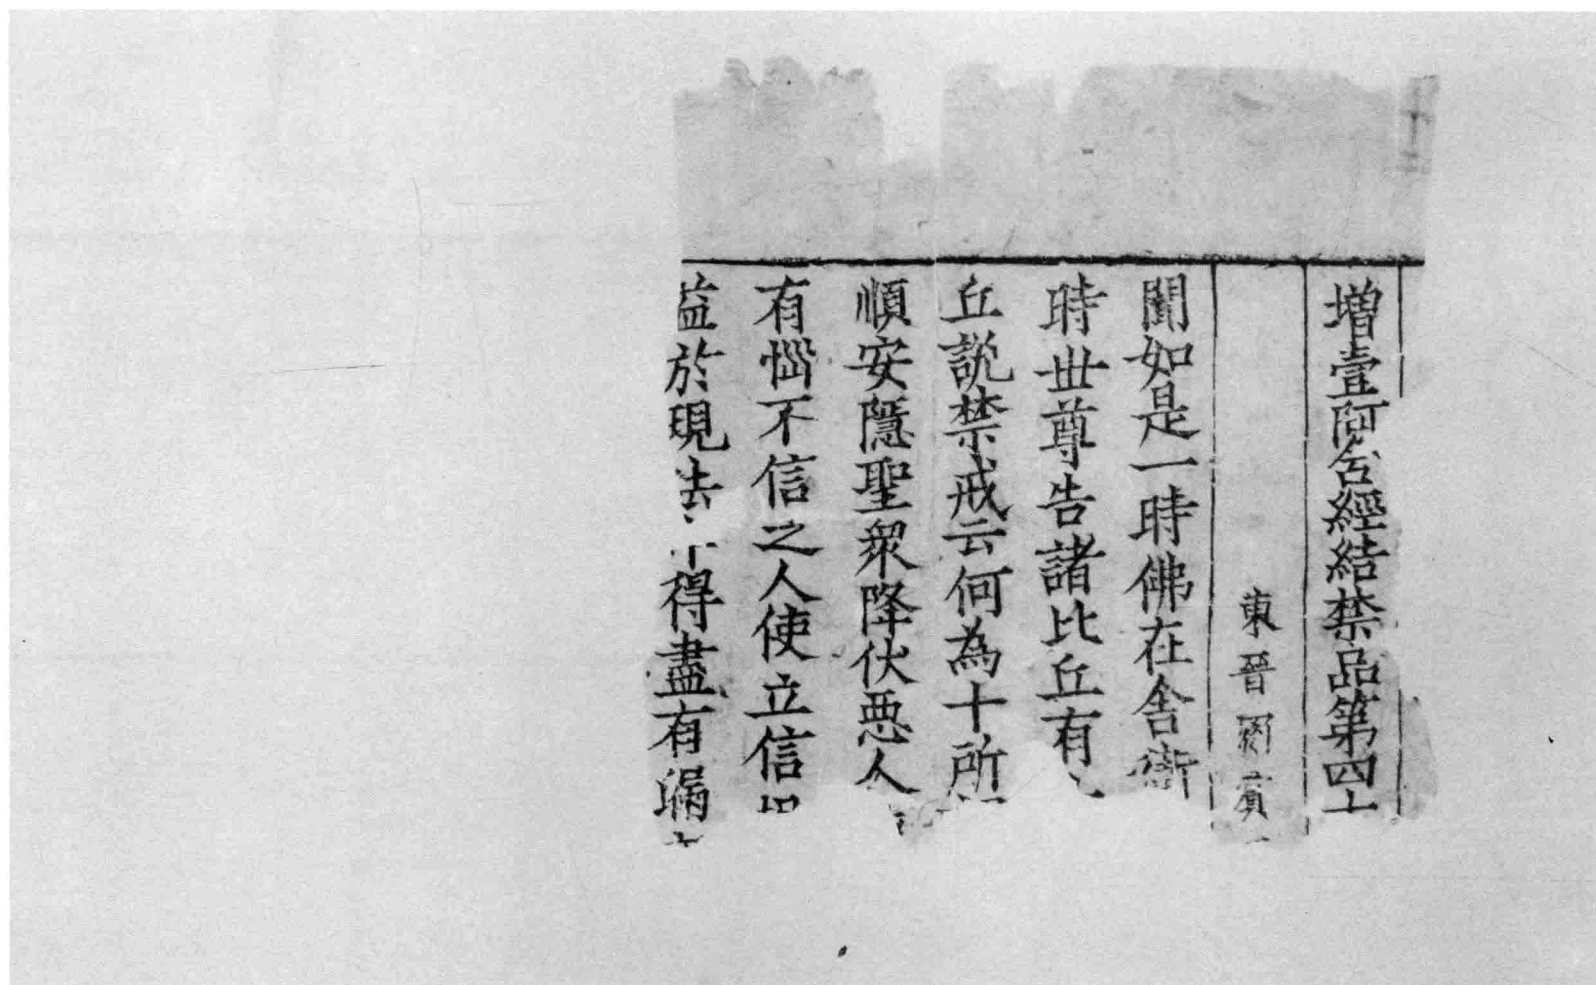 增壹阿含經結禁品第四十
東晉罽賓
聞如是一時佛在舍衛
時世尊告諸比丘有
丘說禁戒云何為十所
順安隱聖衆降伏惡人
有惱不信之人使立信
益於現法 得盡有漏